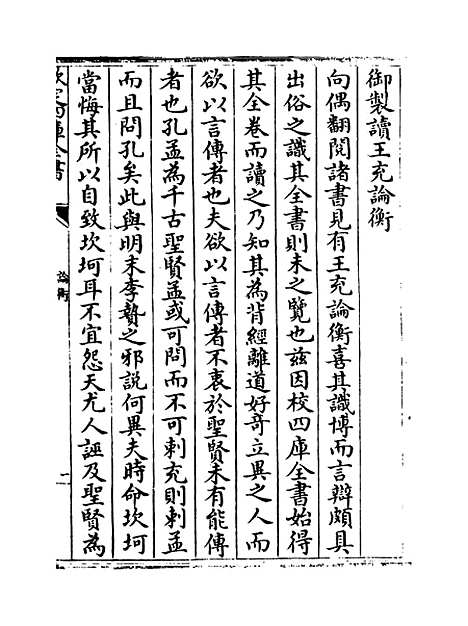 御製讀王充論衡
向偶翻閱諸書見有王充論衡喜其識博而言辯頗具
出俗之識其全書則未之覽也兹因校四庫全書始得
其全卷而讀之乃知其為背經離道好竒立異之人而
欲以言傳者也夫欲以言傳者不衷於聖賢未有能傳
者也孔孟為千古聖賢孟或可問而不可刺充則刺孟
而且問孔矣此與明末李贄之邪説何異夫時命坎坷
當悔其所以自致坎坷耳不宜怨天尤人誣及聖賢為
欽定四庫全書
論衡
二